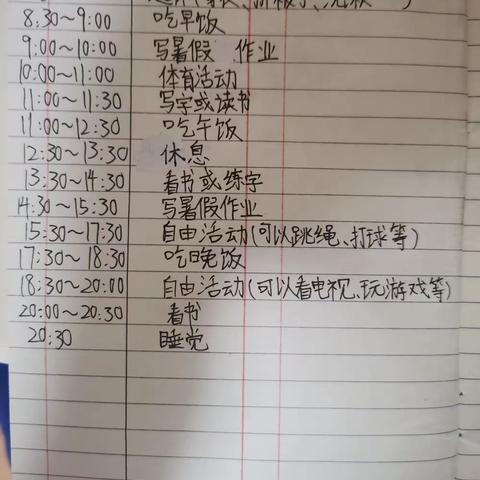 8:30～9:00 吃早饭
9:00～10:00 写暑假 作业
10:00～11:00 体育活动
11:00～11:30 写字或读书
11:00～12:30 吃午饭
12:30～13:30 休息
13:30～14:30 看书或练字
14:30～15:30 写暑假作业
15:30～17:30 自由活动(可以跳绳、打球等)
17:30～18:30 吃晚饭
18:30～20:00 自由活动(可以看电视、玩游戏等)
20:00～20:30 看书
20:30 睡觉